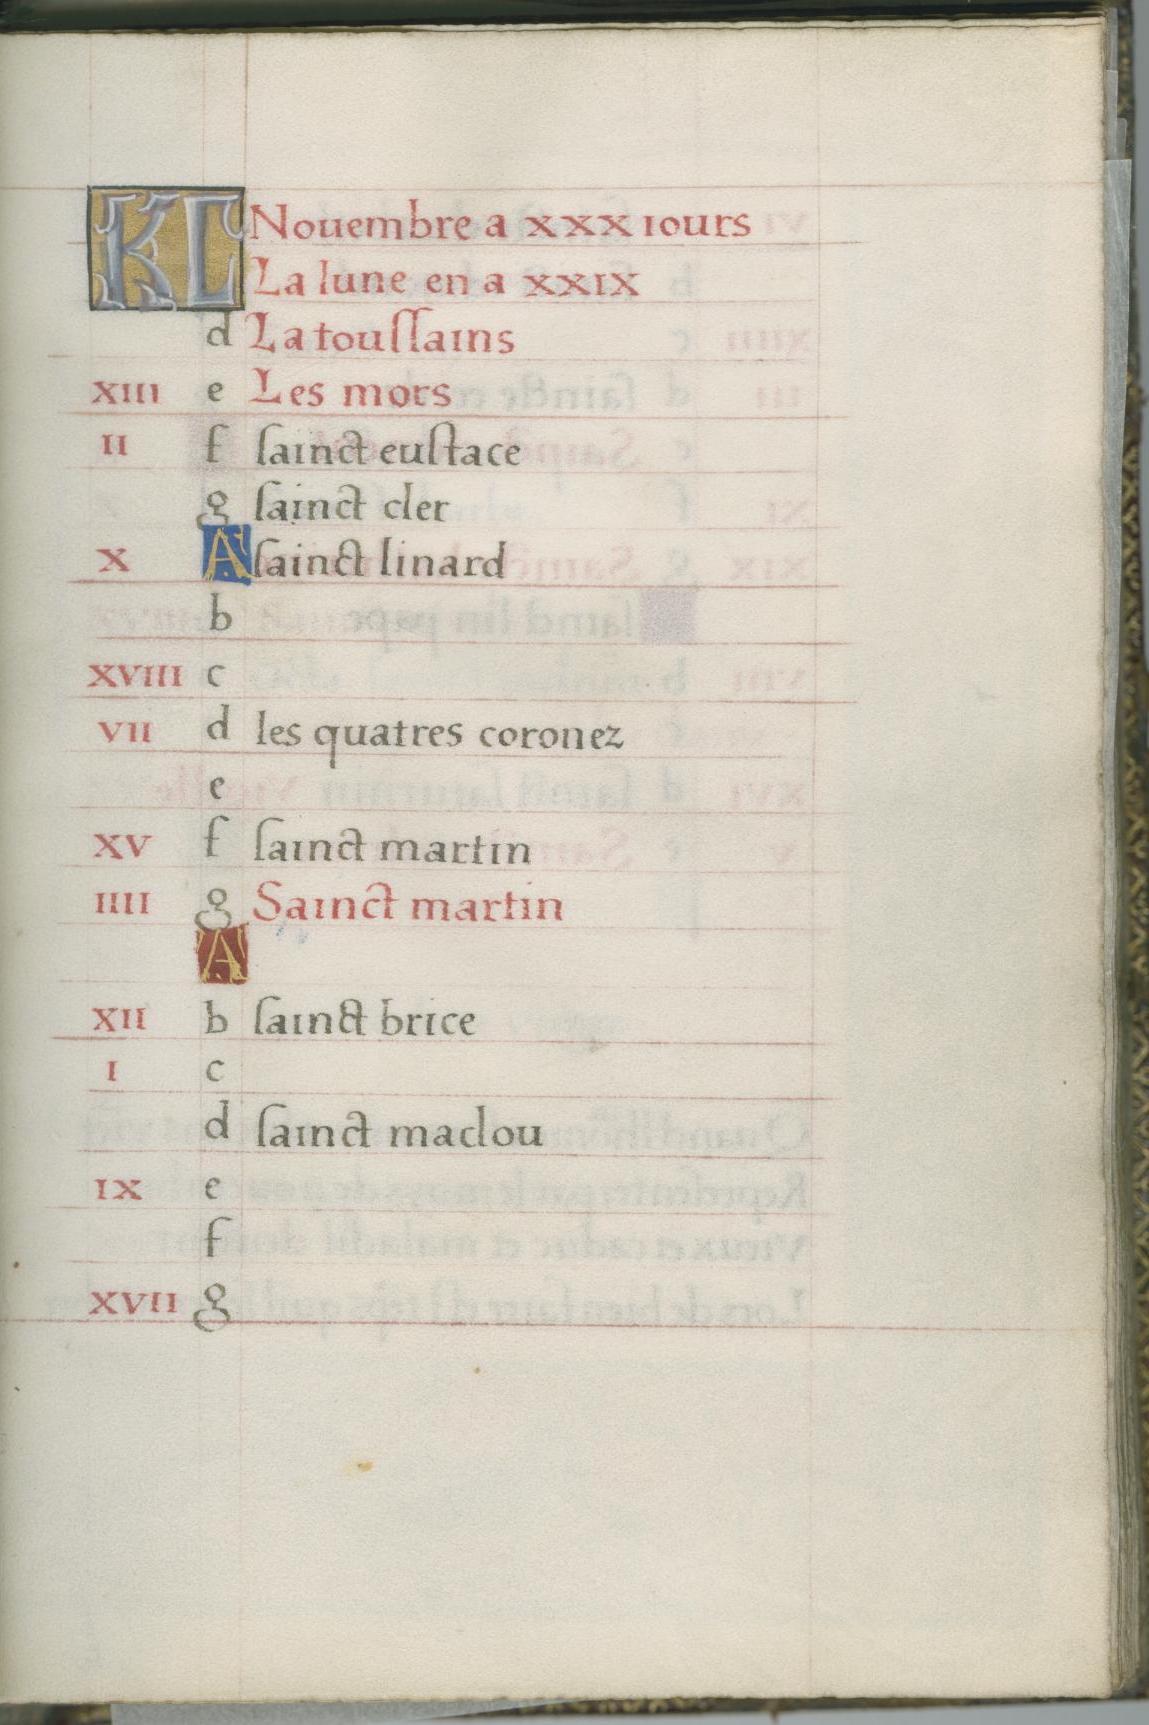 KL Nouembre a xxx iours
La lune en a xxix
d La toussains
xiii e Les mors
ii f sainct eustace
g sainct cler
x A sainct linard
b
xviii c
vii d les quatres coronez
e
xv f sainct martin
iiii g Sainct martin
A
xii b sainct brice
i c
d sainct maclou
ix e
f
xvii g